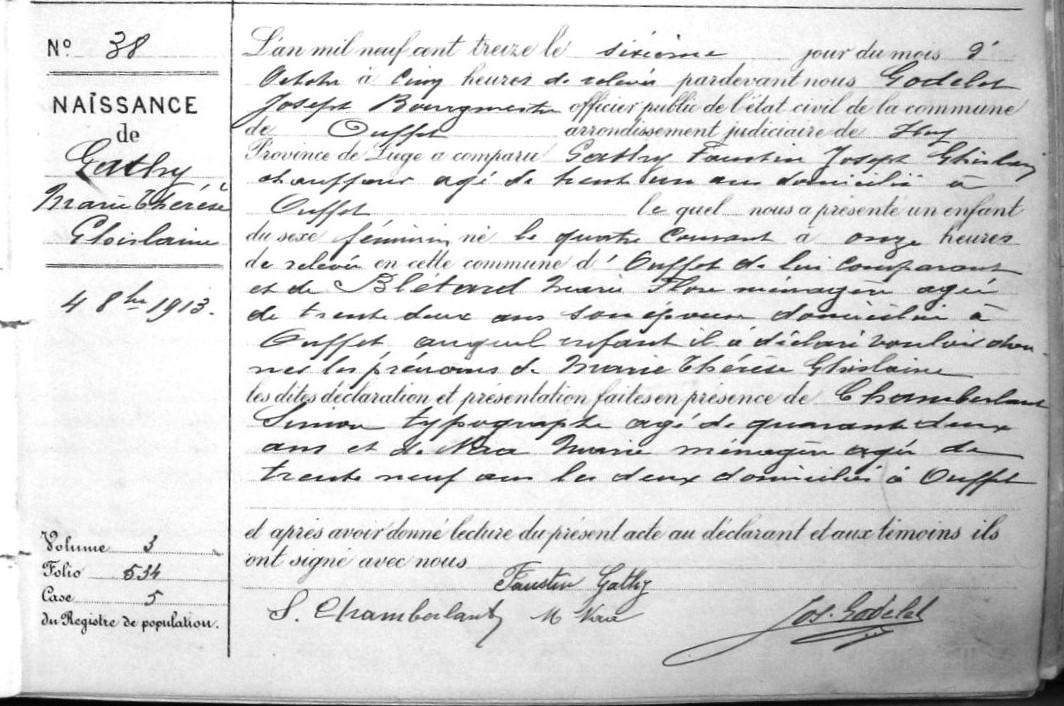 N° 38
NAISSANCE
de
Gathy
Marie Thérèse
Ghislaine
4 8bre 1913.
Volume 3
Folio 534
Case 5
du Registre de population.
L'an mil neuf cent treize le sixième jour du mois d'
Octobre à Cinq heures de relevée pardevant nous Godelet
Joseph Bourgmestre officier public de l'état civil de la commune
de Ouffet arrondissement judiciaire de Huy
Province de Liège a comparu Gathy Faustin Joseph Ghislain
chauffeur agé de trent un ans domicilié à
Ouffet le quel nous a présenté un enfant
du sexe féminin né le quatre courant à onze heures
de relevée en cette commune d'Ouffet de lui comparant
et de Blétard Marie Flore ménagère agée
de trente deux ans son épouse domiciliée à
Ouffet auquel enfant il a déclaré vouloir don-
ner les prénoms de Marie Thérèse Ghislaine
les dites déclaration et présentation faites en présence de Chamberlant
Simon typographe agé de quarant deux
ans et de Marie ménagère agée de
trente neuf ans les deux domiciliés à Ouffet
et après avoir donné lecture du présent acte au déclarant et aux témoins ils
ont signé avec nous
Faustin Gathy
S. Chamberlant M Jos. Godelet